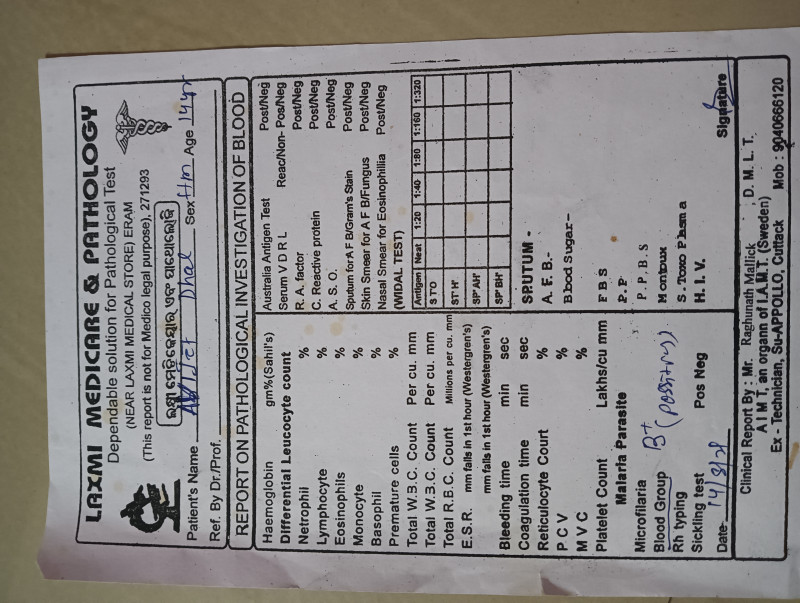 LAXMI MEDICARE & PATHOLOGY
Dependable solution for Pathological Test
(NEAR LAXMI MEDICAL STORE) ERAM
(This report is not for Medico legal purpose), 271293
ଲକ୍ଷ୍ମୀ ମେଡିକେୟାର ଏବଂ ପାଥୋଲୋଜି
Patient's Name Dhal Sex Age 14 yr
Ref. By Dr./Prof.
REPORT ON PATHOLOGICAL INVESTIGATION OF BLOOD
Haemoglobin gm%(Sahil's)
Differential Leucocyte count
Netrophil %
Lymphocyte %
Eosinophils %
Monocyte %
Basophil %
Premature cells %
Total W.B.C. Count Per cu. mm
Total W.B.C. Count Per cu. mm
Total R.B.C. Count Millions per cu. mm
E.S.R. mm falls in 1st hour (Westergren's)
mm falls in 1st hour (Westergren's)
Bleeding time min sec
Coagulation time min sec
Reticulocyte Court %
P C V %
M V C %
Platelet Count Lakhs/cu mm
Malaria Parasite
Microfilaria
Blood Group B+ (Positive)
Rh typing
Sickling test Pos Neg
Date
Australia Antigen Test Post/Neg
Serum V D R L Reac/Non- Pos/Neg
R. A. factor Post/Neg
C. Reactive protein Post/Neg
A. S. O. Post/Neg
Sputum for A F B/Gram's Stain Post/Neg
Skin Smeer for A F B/Fungus Post/Neg
Nasal Smear for Eosinophillia Post/Neg
(WIDAL TEST)
Antigen Neat 1:20 1:40 1:80 1:160 1:320
S 'T' O
S T' H'
SP' AH'
SP' BH'
SPUTUM -
A. F. B.-
Blood Sugar-
F B S
P.P
P.P.B.S
Montoux
S. Toxo Plasma
H. I. V.
Signature
Clinical Report By : Mr. Raghunath Mallick, D. M. L. T.
A I M T, an organn of I.A.M.T. (Sweden)
Ex - Technician, Su-APPOLLO, Cuttack Mob : 9040666120